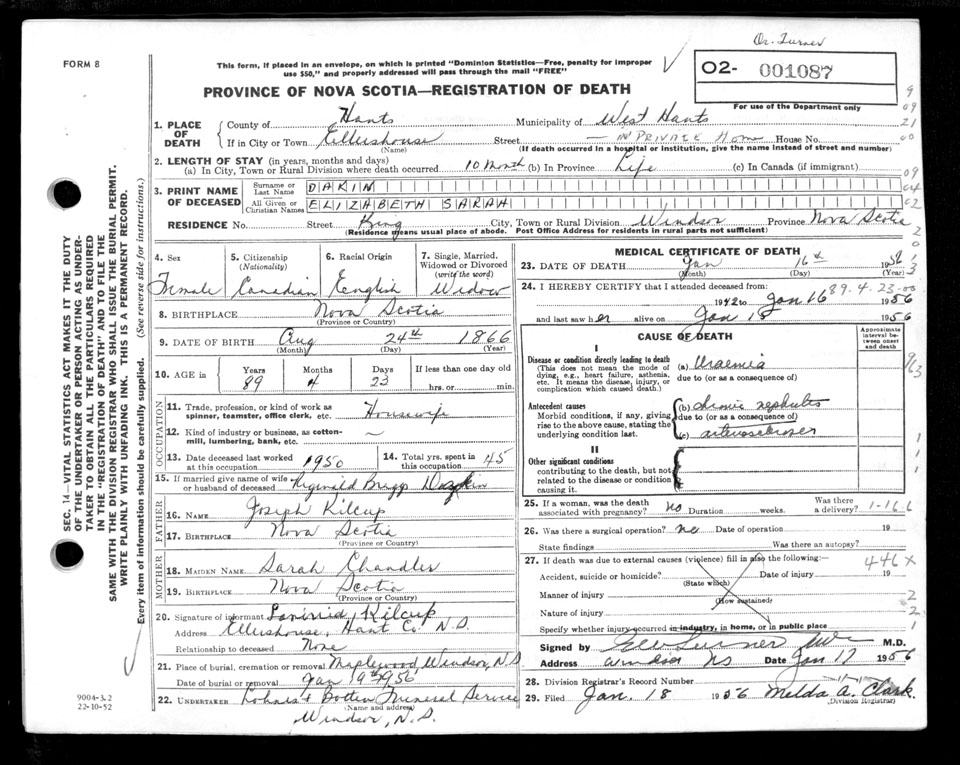 Dr. Turner
FORM 8
This form, if placed in an envelope, on which is printed "Dominion Statistics—Free, penalty for improper
use $50," and properly addressed will pass through the mail "FREE"
02- 001087
PROVINCE OF NOVA SCOTIA—REGISTRATION OF DEATH
For use of the Department only
1. PLACE OF DEATH
County of Hants Municipality of West Hants
If in City or Town Ellershouse Street — IN PRIVATE Home House No.
(Name) (If death occurred in a hospital or institution, give the name instead of street and number)
2. LENGTH OF STAY (in years, months and days)
(a) In City, Town or Rural Division where death occurred 10 Month (b) In Province Life (c) In Canada (if immigrant)
3. PRINT NAME OF DECEASED
Surname or Last Name DAKIN
All Given or Christian Names ELIZABETH SARAH
RESIDENCE No. Street King City, Town or Rural Division Windsor Province Nova Scotia
(Residence means usual place of abode. Post Office Address for residents in rural parts not sufficient)
4. Sex Female
5. Citizenship (Nationality) Canadian
6. Racial Origin English
7. Single, Married, Widowed or Divorced (write the word) Widow
8. BIRTHPLACE Nova Scotia
(Province or Country)
9. DATE OF BIRTH Aug 24th 1866
(Month) (Day) (Year)
10. AGE in Years 89 Months 4 Days 23 If less than one day old
hrs. or min.
OCCUPATION
11. Trade, profession, or kind of work as spinner, teamster, office clerk, etc. Housewife
12. Kind of industry or business, as cotton-mill, lumbering, bank, etc. ~
13. Date deceased last worked at this occupation 1950
14. Total yrs. spent in this occupation 45
15. If married give name of wife or husband of deceased Reginald Brigg Dakin
FATHER
16. NAME Joseph Kilcup
17. BIRTHPLACE Nova Scotia
(Province or Country)
MOTHER
18. MAIDEN NAME Sarah Chandler
19. BIRTHPLACE Nova Scotia
(Province or Country)
20. Signature of informant Kilcup
Address Ellershouse, Hant Co. N.S.
Relationship to deceased None
21. Place of burial, cremation or removal Maplewood Windsor, N.S.
Date of burial or removal Jan 19th 1956
22. UNDERTAKER Funeral Service
(Name and address)
Windsor, N.S.
MEDICAL CERTIFICATE OF DEATH
23. DATE OF DEATH Jan 16th 1956
(Month) (Day) (Year)
24. I HEREBY CERTIFY that I attended deceased from: 89.4.23-00
1942 to Jan 16 1956
and last saw her alive on Jan 15 1956
CAUSE OF DEATH
Approximate interval between onset and death
I
Disease or condition directly leading to death
(This does not mean the mode of dying, e.g., heart failure, asthenia, etc. It means the disease, injury, or complication which caused death.)
(a) Uraemia
due to (or as a consequence of)
Antecedent causes
Morbid conditions, if any, giving rise to the above cause, stating the underlying condition last.
(b) chronic nephritis
due to (or as a consequence of)
(c) arteriosclerosis
II
Other significant conditions
contributing to the death, but not related to the disease or condition causing it.
25. If a woman, was the death associated with pregnancy? No Duration weeks. Was there a delivery? 1-16 6
26. Was there a surgical operation? no Date of operation 19
State findings Was there an autopsy?
27. If death was due to external causes (violence) fill in also the following: 446x
Accident, suicide or homicide? Date of injury 19
(State which)
Manner of injury
(How sustained)
Nature of injury
Specify whether injury occurred in industry, in home, or in public place
Signed by M.D.
Address Windsor NS Date Jan 17 1956
28. Division Registrar's Record Number
29. Filed Jan. 18 1956 Melda A. Clark
(Division Registrar)
SEC. 14—VITAL STATISTICS ACT MAKES IT THE DUTY
OF THE UNDERTAKER OR PERSON ACTING AS UNDER-
TAKER TO OBTAIN ALL THE PARTICULARS REQUIRED
IN THE "REGISTRATION OF DEATH" AND TO FILE THE
SAME WITH THE DIVISION REGISTRAR WHO SHALL ISSUE THE BURIAL PERMIT.
WRITE PLAINLY WITH UNFADING INK. THIS IS A PERMANENT RECORD.
Every item of information should be carefully supplied. (See reverse side for instructions.)
9004-3.2
22-10-52